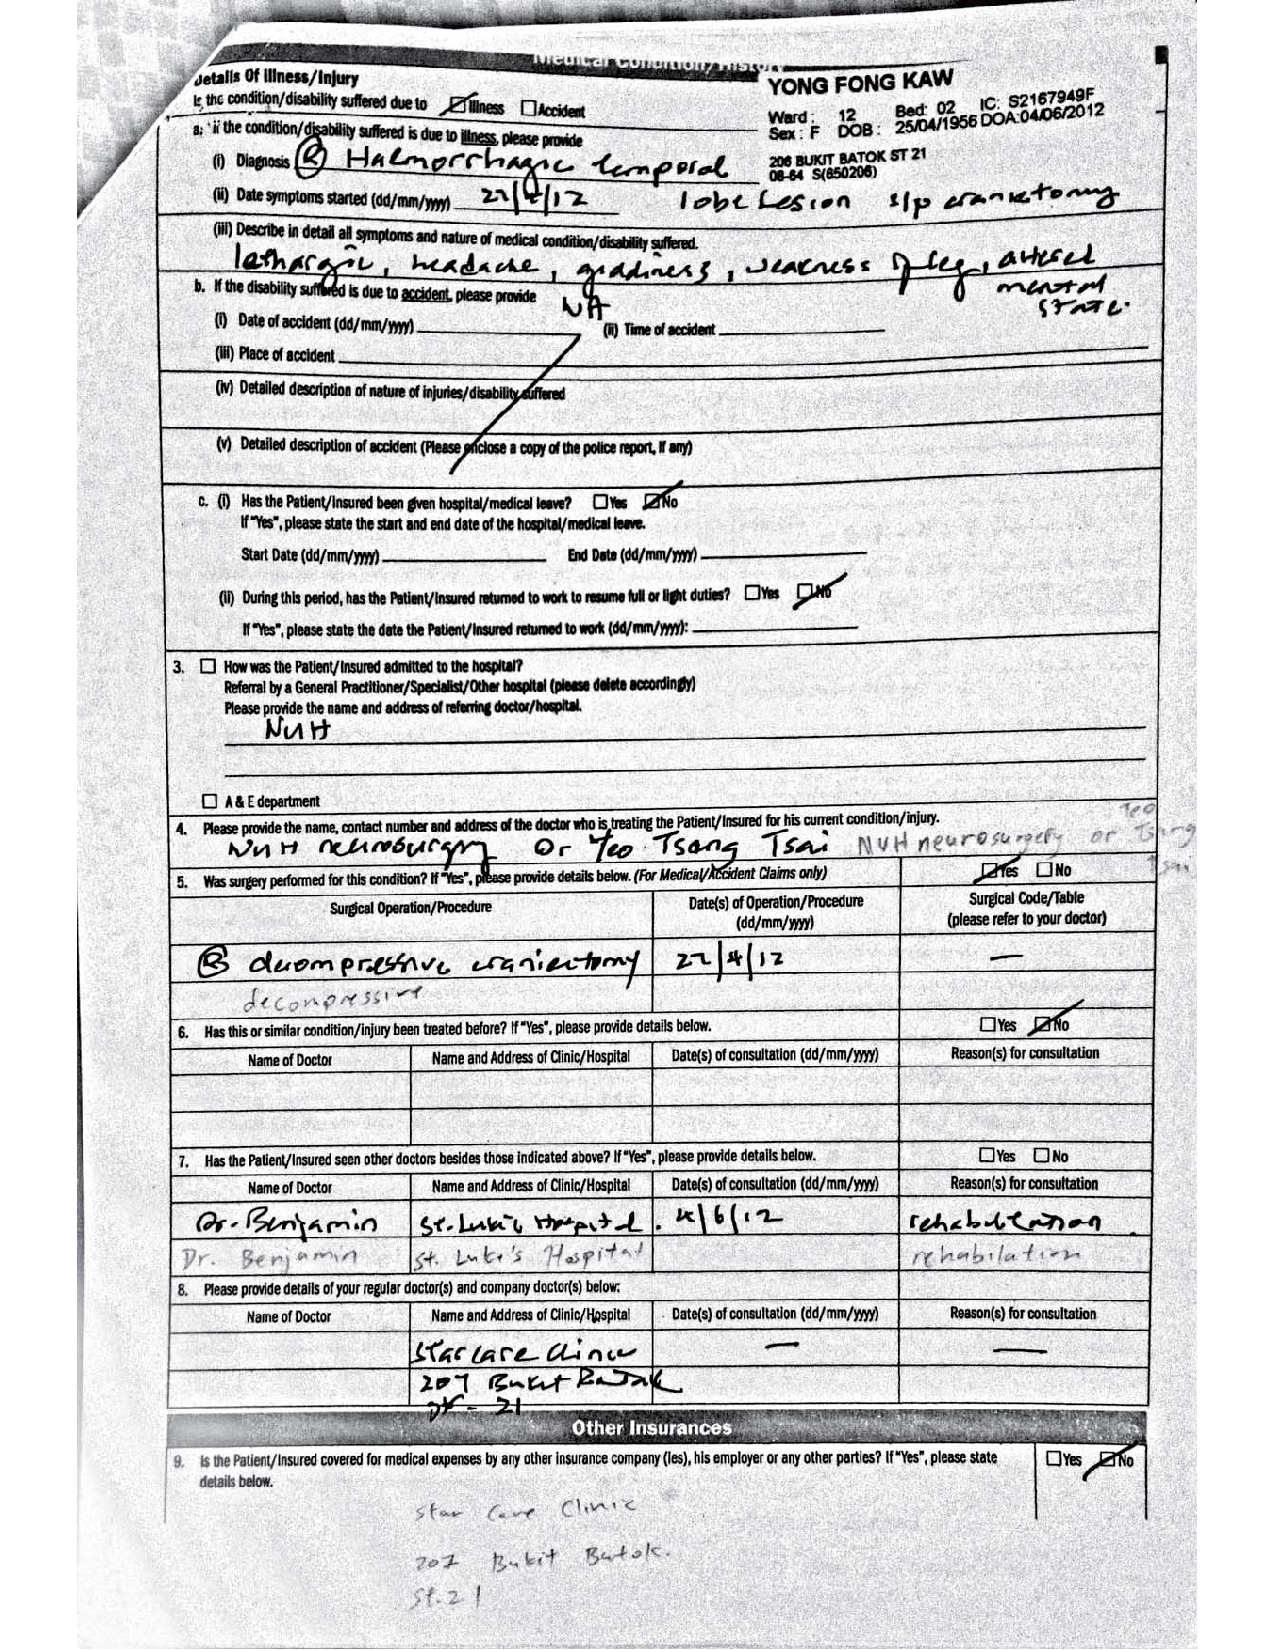 Medical Condition/History
Details Of Illness/Injury
YONG FONG KAW
Is the condition/disability suffered due to Illness Accident
Ward: 12 Bed: 02 IC: S2167949F
Sex: F DOB: 25/04/1956 DOA:04/06/2012
a. if the condition/disability suffered is due to illness, please provide
206 BUKIT BATOK ST 21
08-64 S(650206)
(i) Diagnosis (R) Haemorrhagic temporal
lobe lesion s/p craniectomy
(ii) Date symptoms started (dd/mm/yyyy) 22/4/12
(iii) Describe in detail all symptoms and nature of medical condition/disability suffered.
lethargic, headache, giddiness, weakness of leg, altered
mental
state.
b. If the disability suffered is due to accident, please provide
NA
(i) Date of accident (dd/mm/yyyy) (ii) Time of accident
(iii) Place of accident
(iv) Detailed description of nature of injuries/disability suffered
(v) Detailed description of accident (Please enclose a copy of the police report, if any)
c. (i) Has the Patient/Insured been given hospital/medical leave? Yes No
If "Yes", please state the start and end date of the hospital/medical leave.
Start Date (dd/mm/yyyy) End Date (dd/mm/yyyy)
(ii) During this period, has the Patient/Insured returned to work to resume full or light duties? Yes No
If "Yes", please state the date the Patient/Insured returned to work (dd/mm/yyyy):
3. How was the Patient/Insured admitted to the hospital?
Referral by a General Practitioner/Specialist/Other hospital (please delete accordingly)
Please provide the name and address of referring doctor/hospital.
NUH
A & E department
4. Please provide the name, contact number and address of the doctor who is treating the Patient/Insured for his current condition/injury.
NUH neurosurgery Dr Yeo Tsang Tsai NUH neurosurgery or Teo Tsang Tsai
5. Was surgery performed for this condition? If "Yes", please provide details below. (For Medical/Accident Claims only) Yes No
Surgical Operation/Procedure Date(s) of Operation/Procedure (dd/mm/yyyy) Surgical Code/Table (please refer to your doctor)
(R) decompressive craniectomy 22/4/12 —
decompressive
6. Has this or similar condition/injury been treated before? If "Yes", please provide details below. Yes No
Name of Doctor Name and Address of Clinic/Hospital Date(s) of consultation (dd/mm/yyyy) Reason(s) for consultation
7. Has the Patient/Insured seen other doctors besides those indicated above? If "Yes", please provide details below. Yes No
Name of Doctor Name and Address of Clinic/Hospital Date(s) of consultation (dd/mm/yyyy) Reason(s) for consultation
Dr. Benjamin St. Luke's Hospital. 4/6/12 rehabilitation.
Dr. Benjamin St. Luke's Hospital rehabilation
8. Please provide details of your regular doctor(s) and company doctor(s) below:
Name of Doctor Name and Address of Clinic/Hospital Date(s) of consultation (dd/mm/yyyy) Reason(s) for consultation
Star care clinic — —
207 Bukit Batok
St - 21
Other Insurances
9. Is the Patient/Insured covered for medical expenses by any other insurance company (ies), his employer or any other parties? If "Yes", please state Yes No
details below.
Star Care Clinic
207 Bukit Batok.
St. 21